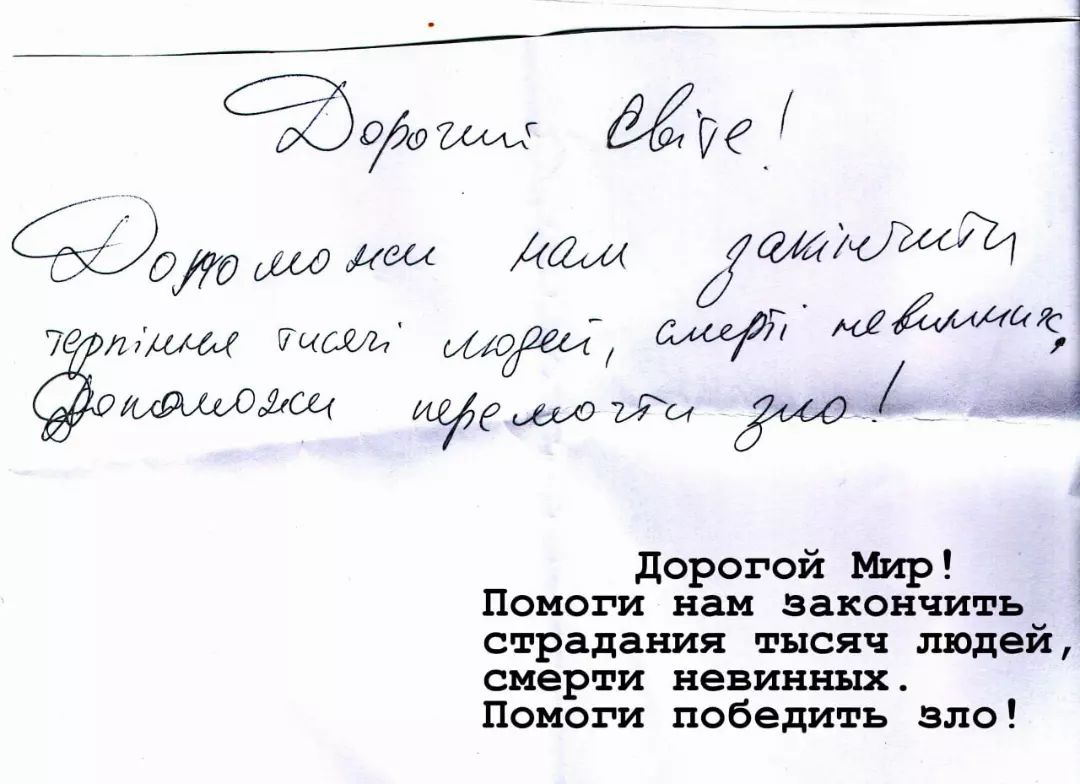 Дорогий Світе!
Допоможи нам закінчити
терпіння тисячі людей, смерті невинних,
Допоможи перемогти зло!
Дорогой Мир!
Помоги нам закончить
страдания тысяч людей,
смерти невинных.
Помоги победить зло!